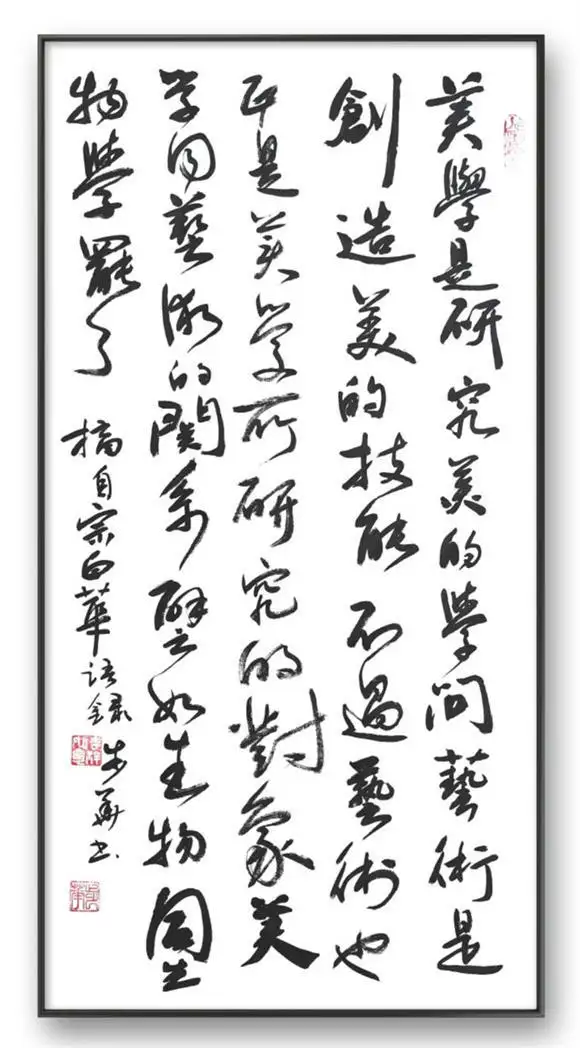 美學是研究美的學问藝術是
創造美的技能不過藝術也
正是美学所研究的對象美
学同藝術的関系譬如生物同生
物學罷了
摘自宗白華语錄
步華书